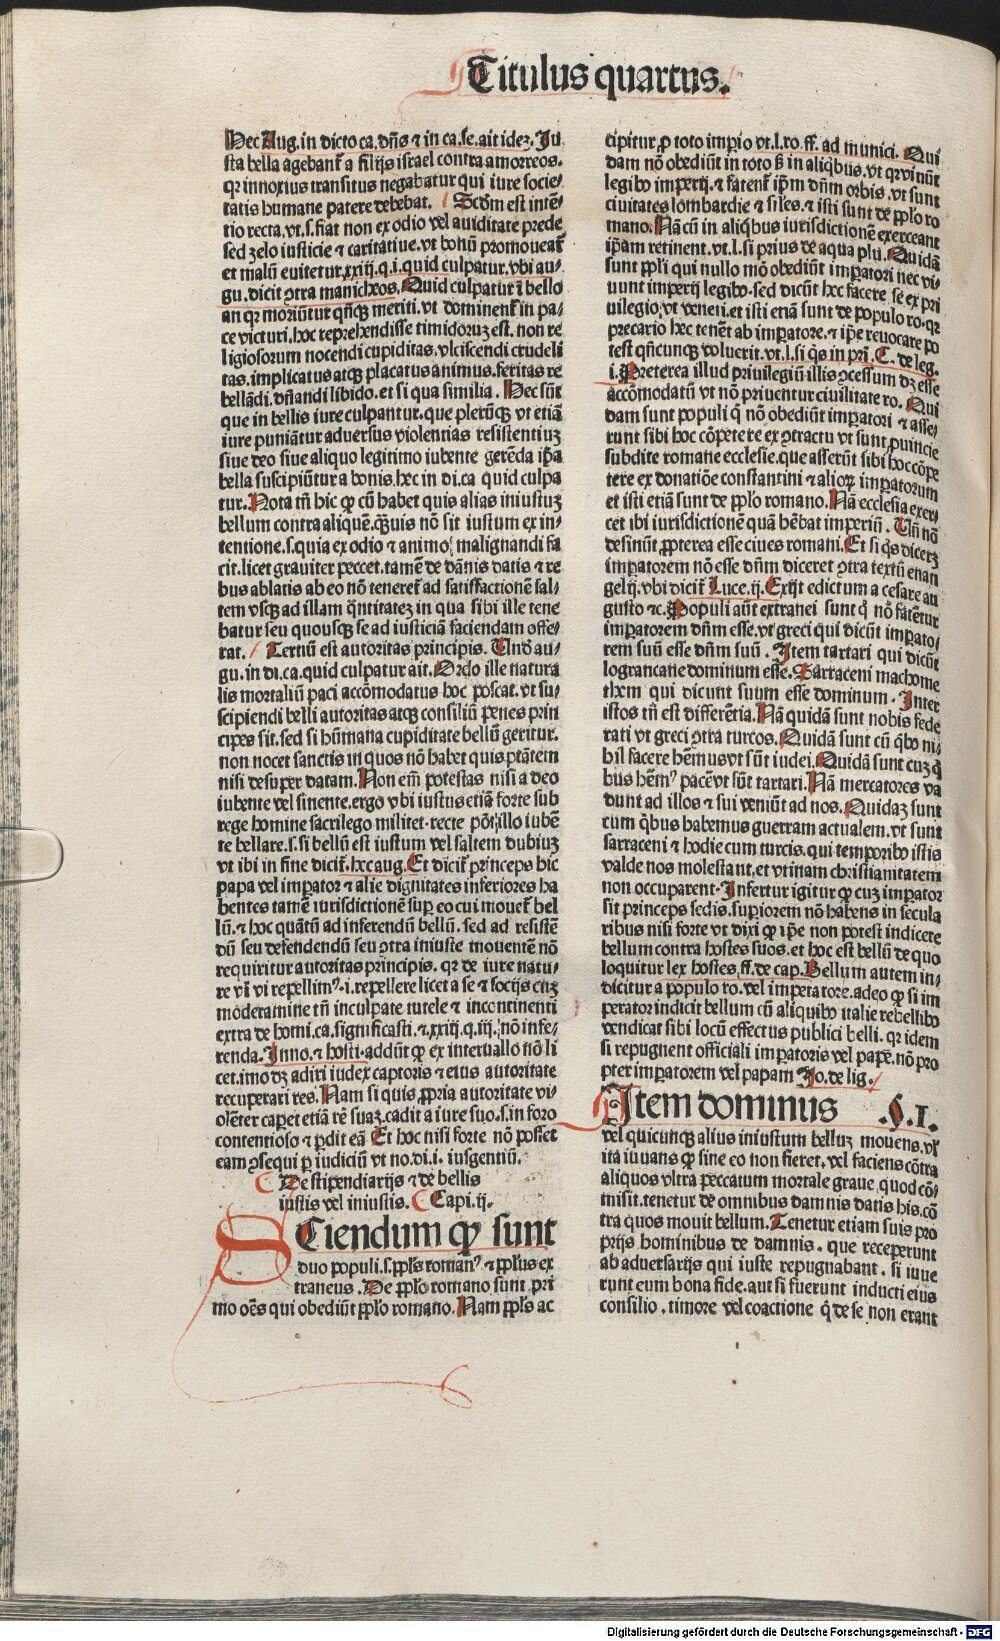 Titulus quartus.
Hec Aug. in dicto ca. dñs ⁊ in ca. se. ait idez. Ju
sta bella agebant᷑ a filijs israel contra amorreos.
qꝛ innoxius transitus negabatur qui iure socie/
tatis humane patere debebat. Scd̃m est intẽ/
tio recta. vt. s. fiat non ex odio vel auiditate prede
sed zelo iusticie ⁊ caritatiue. vt bonũ promoueat᷑
et malũ euitetur. xxiij. q. i. quid culpatur. vbi au/
gu. dicit ꝯtra manicheos. Quid culpatur ĩ bello
an qꝛ moriũtur qñqꝫ meriti. vt dominent᷑ in pa/
ce victuri. hoc reprehendisse timidoruꝫ est. non re
ligiosorum nocendi cupiditas. vlciscendi crudeli
tas. implicatus atqꝫ placatus animus. feritas re
bellãdi. dñandi libido. et si qua similia. Hec sũt
que in bellis iure culpantur. que plerũqꝫ vt etiã
iure puniãtur aduersus violentias resistentiuꝫ
siue deo siue aliquo legitimo iubente gerẽda ip̃a
bella suscipiũtur a bonis. hec in di. ca quid culpa
tur. Nota tñ hic ꝙ cũ habet quis alias iniustuꝫ
bellum contra aliquẽ. qꝫuis nõ sit iustum ex in/
tentione. s. quia ex odio ⁊ animo malignandi fa
cit. licet grauiter peccet. tamẽ de dãnis datis ⁊ re
bus ablatis ab eo nõ teneret᷑ ad satisfactionẽ sal/
tem vsqꝫ ad illam q̃ntitateꝫ in qua sibi ille tene
batur seu quousqꝫ se ad iusticiã faciendam offe/
rat. Tertiũ est autoritas principis. Unð au/
gu. in di. ca. quid culpatur ait. Ordo ille natura
lis mortaliũ paci accõmodatus hoc poscat. vt su/
scipiendi belli autoritas atqꝫ consiliũ penes prin
cipes sit. sed si hũmana cupiditate bellũ geritur.
non nocet sanctis in quos nõ habet quis ptãtem
nisi desuper datam. Non em̃ potestas nisi a deo
iubente vel sinente. ergo vbi iustus etiã forte sub
rege homine sacrilego militet. recte põt illo iubẽ
te bellare. s. si bellũ est iustum vel saltem dubiuꝫ
vt ibi in fine dicit᷑. hec aug. Et dicit᷑ princeps hic
papa vel imꝑator ⁊ alie dignitates inferiores ha
bentes tamẽ iurisdictionẽ suꝑ eo cui mouet᷑ bel
lũ. ⁊ hoc quãtũ ad inferendũ bellũ. sed ad resistẽ
dũ seu defendendũ seu ꝯtra iniuste mouentẽ nõ
requiritur autoritas principis. qꝛ de iure natu/
re vĩ vi repellimꝰ. i. repellere licet a se ⁊ socijs cuꝫ
moderamine tñ inculpate tutele ⁊ incontinenti
extra de homi. ca. significasti. ⁊. xxiij. q. iij. nõ infe/
renda. Inno. ⁊ hosti. addũt ꝙ ex interuallo nõ li
cet. imo dꝫ adiri iudex captoris ⁊ eius autoritate
recuperari res. Nam si quis ꝓpria autoritate vi/
olẽter capet etiã rẽ suaꝫ. cadit a iure suo. s. in foro
contentioso ⁊ ꝑdit eã Et hoc nisi forte nõ posset
eam ꝯsequi ꝑ iudiciũ vt no. di. i. iusgentiũ.
De stipendiarijs ⁊ de bellis
iustis vel iniustis. Capi. ij.
SCiendum ꝙ sunt
duo populi. s. pp̃ls romanꝰ ⁊ pp̃lus ex
traneus. De pp̃lo romano sunt pri
mo oẽs qui obediũt pp̃lo romano. Nam pp̃ls ac
cipitur ꝓ toto imꝑio vt. l. ro. ff. ad munici. Qui
dam nõ obediũt in toto sꝫ in aliqbus. vt qꝛ viuũt
legibꝰ imperij. ⁊ fatent᷑ ip̃m dñm orbis. vt sunt
ciuitates lombardie ⁊ siles. ⁊ isti sunt de pp̃lo ro
mano. Nã cũ in aliqbus iurisdictionẽ exerceant
ip̃am retinent. vt. l. si prius de aqua plu. Quidã
sunt pp̃li qui nullo mõ obediũt imꝑatori nec vi/
uunt imperij legibꝰ. sed dicũt hec facere se ex pri
uilegio. vt veneti. et isti etiã sunt de populo ro. qꝛ
precario hec tenẽt ab imꝑatore. ⁊ ip̃e reuocare po
test qñcunqꝫ voluerit. vt. l. si q̃s in pri. C. de leg.
i. Preterea illud priuilegiũ illis ꝯcessum dꝫ esse
accõmodatũ vt nõ priuentur ciuilitate ro. Qui
dam sunt populi q̃ nõ obediũt imꝑatori ⁊ asse/
runt sibi hoc cõpetere ex ꝯtractu vt sunt ꝓuincie
subdite romane ecclesie. que asserũt sibi hoc cõpe
tere ex donatiõe constantini ⁊ alioꝝ imꝑatorum
et isti etiã sunt de pp̃lo romano. Nã ecclesia exer/
cet ibi iurisdictionẽ quã hẽbat imperiũ. Uñ nõ
desinũt ꝓpterea esse ciues romani. Et si q̃s diceꝫ
imꝑatorem nõ esse dñm diceret ꝯtra textũ euan
gelij. vbi dicit᷑ Luce. ij. Exijt edictum a cesare au
gusto ⁊c. Populi aũt extranei sunt q̃ nõ fatẽtur
imꝑatorem dñm esse. vt greci qui dicũt imꝑato/
rem suũ esse dñm suũ. Item tartari qui dicũt
lograncane dominum esse. Sarraceni machome
them qui dicunt suum esse dominum. Inter
istos tñ est differẽtia. Nã quidã sunt nobis fede
rati vt greci ꝯtra turcos. Quidã sunt cũ qbꝰ ni/
hil facere hẽmus vt sũt iudei. Quidã sunt cuꝫ q̃
bus hẽmꝰ pacẽ vt sũt tartari. Nã mercatores va
dunt ad illos ⁊ sui veniũt ad nos. Quidaꝫ sunt
cum q̃bus habemus guerram actualem. vt sunt
sarraceni ⁊ hodie cum turcis. qui temporibꝰ istis
valde nos molestant. et vtinam christianitatem
non occuparent. Infertur igitur ꝙ cuꝫ imꝑator
sit princeps sedis. suꝑiorem nõ habens in secula
ribus nisi forte vt dixi ꝙ ip̃e non potest indicere
bellum contra hostes suos. et hoc est bellũ de quo
loquitur lex hostes. ff. de cap. Bellum autem in/
dicitur a populo ro. vel imperatore. adeo ꝙ si im
perator indicit bellum cũ aliquibꝰ italie rebellibꝰ
vendicat sibi locũ effectus publici belli. qꝛ idem
si repugnent officiali imꝑatoris vel pape. nõ pro
pter imꝑatorem vel papam Jo. de lig.
Item dominus .§.I.
vel quicunqꝫ alius iniustum belluꝫ mouens. vl̃
ita iuuans ꝙ sine eo non fieret. vel faciens cõtra
aliquos vltra peccatum mortale graue quod cõ/
misit. tenetur de omnibus damnis datis his. cõ
tra quos mouit bellum. Tenetur etiam suis pro
prijs hominibus de damnis. que receperunt
ab aduersarijs qui iuste repugnabant. si iuue
runt eum bona fide. aut si fuerunt inducti eius
consilio. timore vel coactione q̃ de se non erant
Digitalisierung gefördert durch die Deutsche Forschungsgemeinschaft - DFG